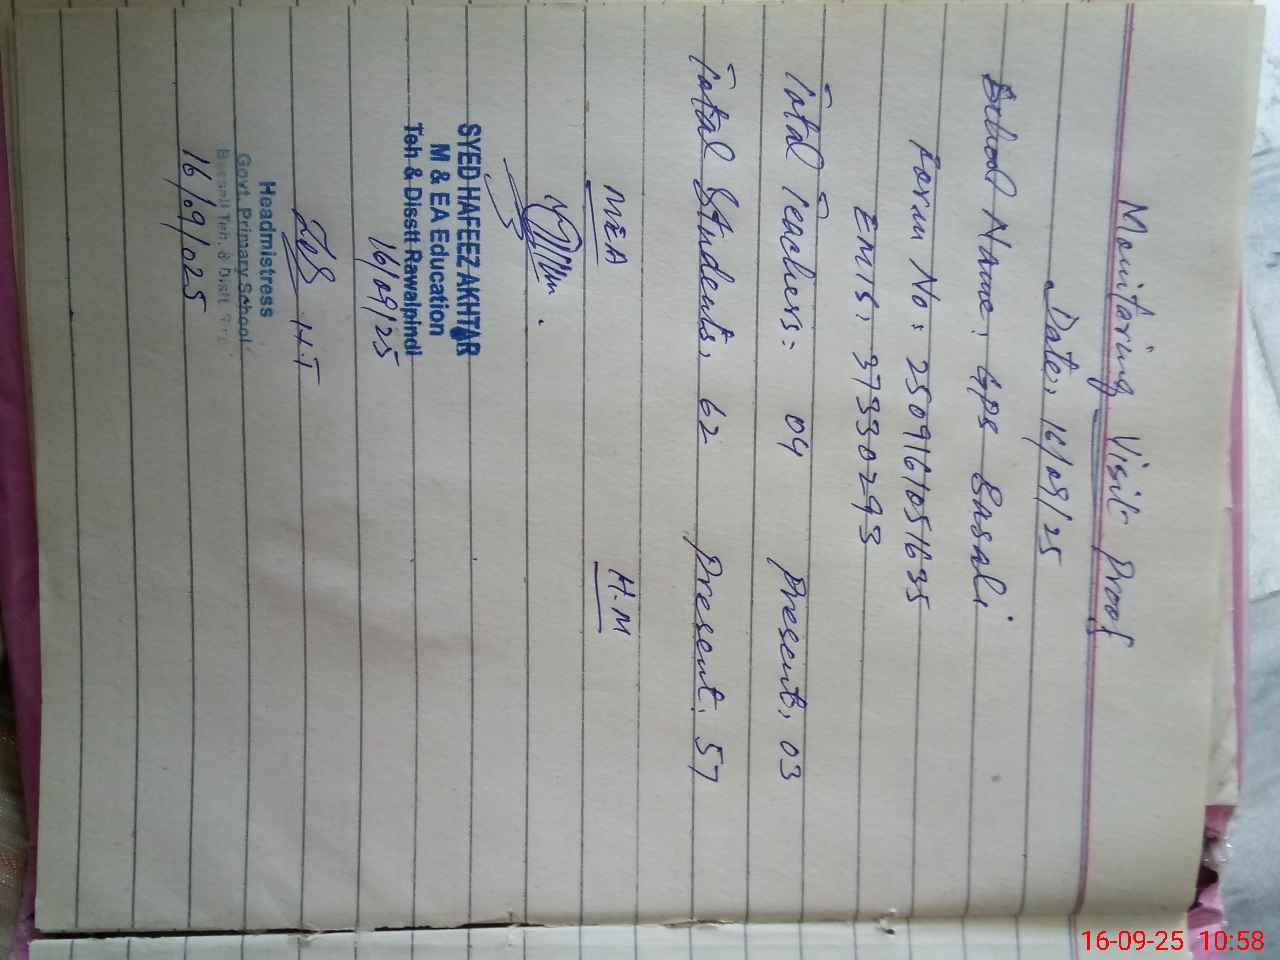 Monitoring Visit Proof
Date: 16/09/25
School Name: GPS Basali
Form No: 2509161051635
EMIS: 37330293
Total Teachers: 04 Present: 03
Total Students: 62 Present: 57
MEA H.M
SYED HAFEEZ AKHTAR
M & EA Education
Teh & Disstt Rawalpindi
16/09/25
H.T
Headmistress
Govt. Primary School
Basali Teh. & Distt
16/09/025
16-09-25 10:58